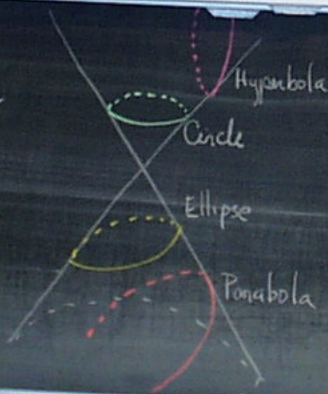 Hyperbola
Circle
Ellipse
Parabola